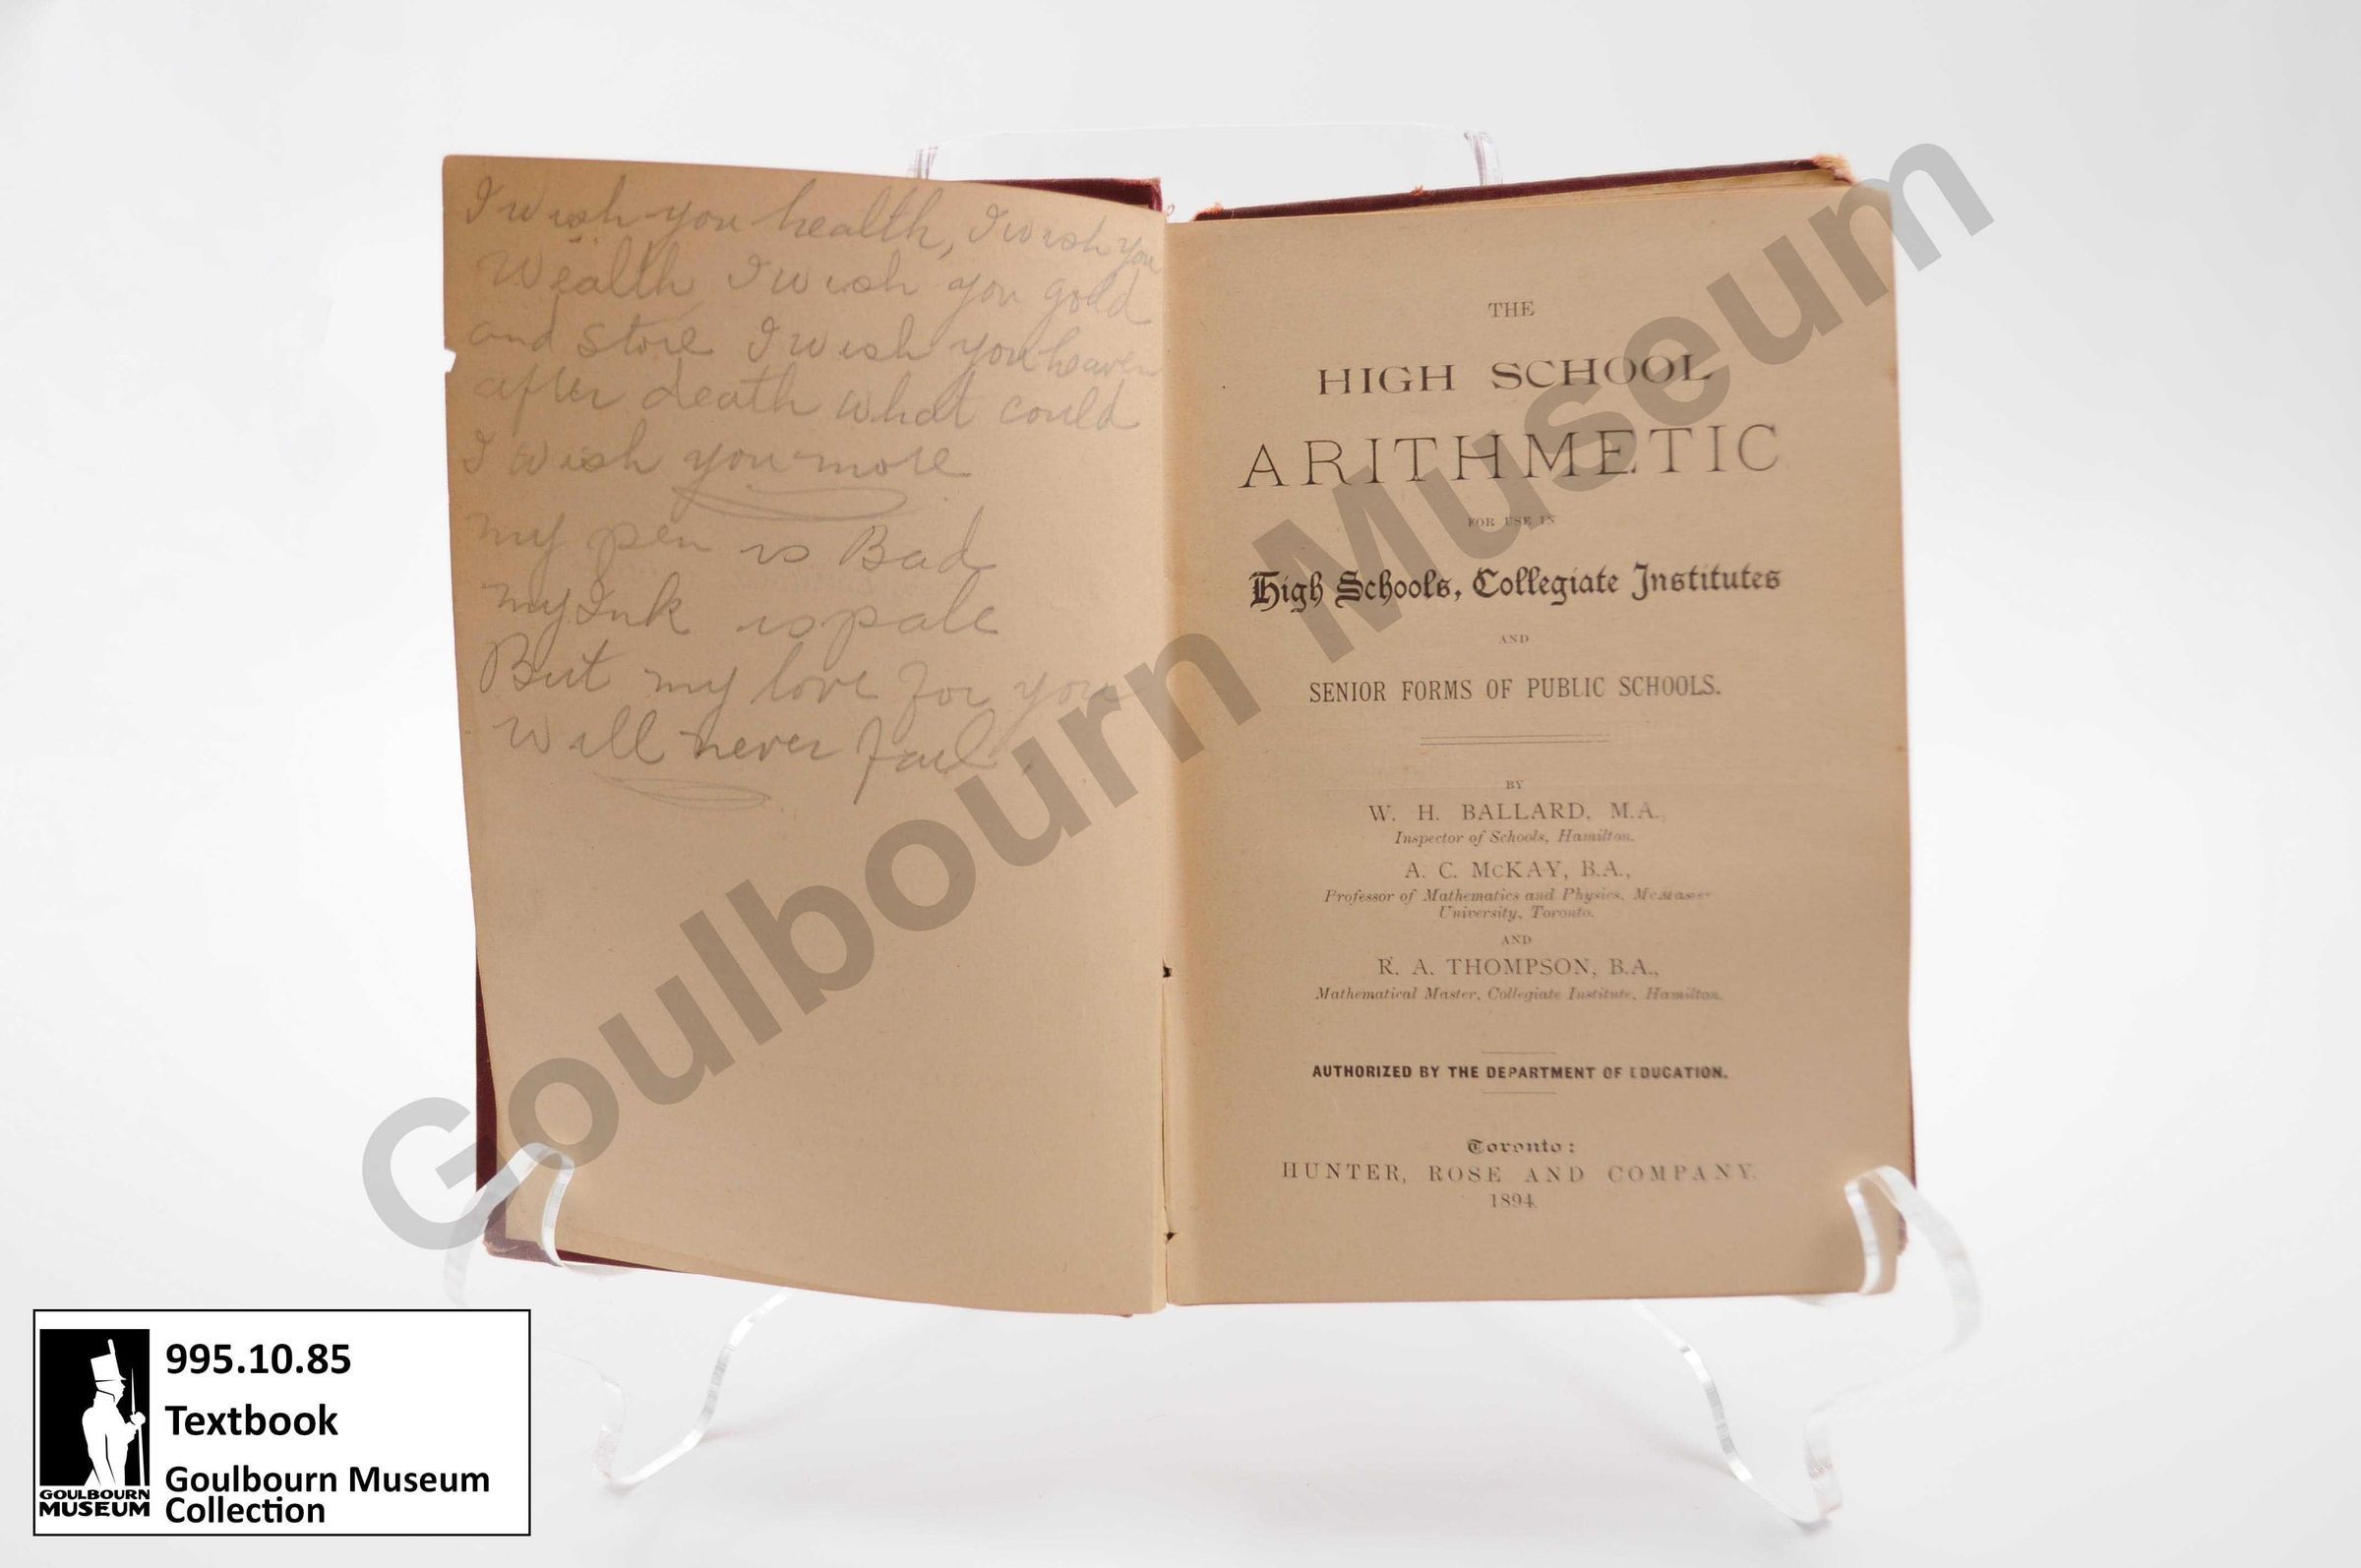 I wish you health, I wish you
Wealth I wish you gold
and store I wish you heaven
after death what could
I wish you more
my pen is Bad
my Ink is pale
But my love for you
Will never fail.
THE
HIGH SCHOOL
ARITHMETIC
FOR USE IN
High Schools, Collegiate Institutes
AND
SENIOR FORMS OF PUBLIC SCHOOLS.
BY
W. H. BALLARD, M.A.,
Inspector of Schools, Hamilton.
A. C. McKAY, B.A.,
Professor of Mathematics and Physics, McMaster
University, Toronto.
AND
R. A. THOMPSON, B.A.,
Mathematical Master, Collegiate Institute, Hamilton.
AUTHORIZED BY THE DEPARTMENT OF EDUCATION.
Toronto:
HUNTER, ROSE AND COMPANY.
1894.
Goulbourn Museum
995.10.85
Textbook
Goulbourn Museum
Collection
GOULBOURN
MUSEUM